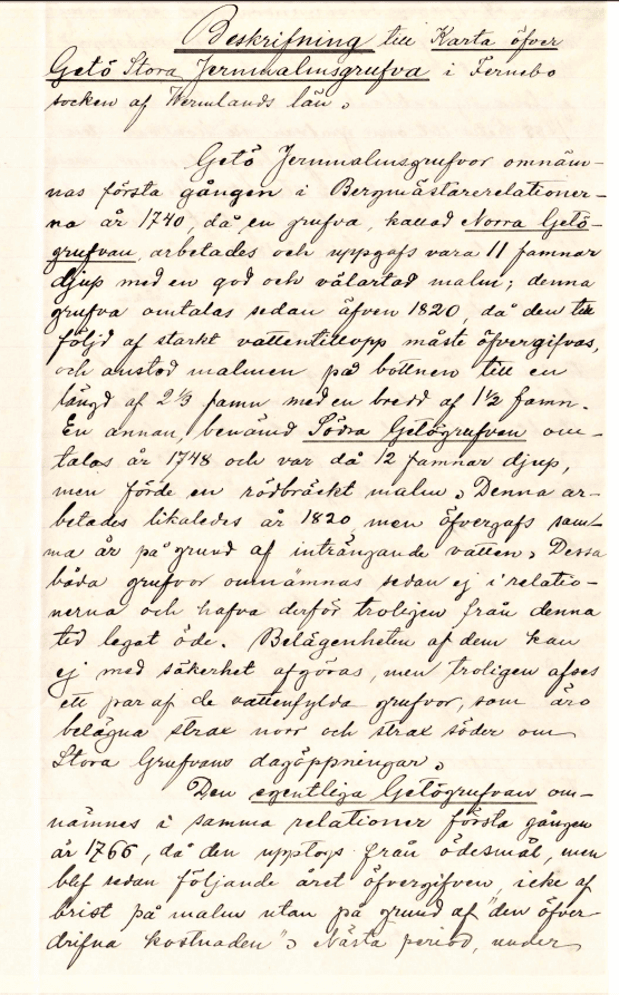 Beskrifning till Karta öfver
Getö Stora Jernmalmsgrufva i Fernebo
socken af Wermlands län.
Getö Jernmalmsgrufvor omnäm-
nas första gången i Bergmästarerelationer-
na år 1740, då en grufva, kallad Norra Getö-
grufvan, arbetades och uppgafs vara 11 famnar
djup med en god och välartad malm; denna
grufva omtalas sedan äfven 1820, då den till
följd af starkt vattentillopp måste öfvergifvas,
och anstod malmen på bottnen till en
längd af 2 1/3 famn med en bredd af 1 1/2 famn.
En annan, benämd Södra Getögrufvan om-
talas år 1748 och var då 12 famnar djup,
men förde en rödbräckt malm. Denna ar-
betades likaledes år 1820 men öfvergafs sam-
ma år på grund af inträngande vatten. Dessa
båda grufvor omnämnas sedan ej i relatio-
nerna och hafva derför troligen från denna
tid legat öde. Belägenheten af dem kan
ej med säkerhet afgöras, men troligen afses
ett par af de vattenfylda grufvor, som äro
belägna strax norr och strax söder om
Stora Grufvans dagöppningar.
Den egentliga Getögrufvan om-
nämnes i samma relationer första gången
år 1766, då den upptogs från ödesmål, men
blef sedan följande året öfvergifven, icke af
brist på malm utan på grund af "den öfver-
drifna kostnaden". Nästa period, under